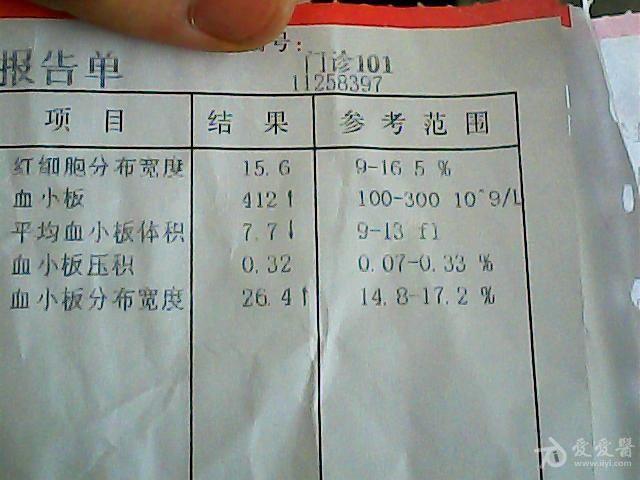 号:
报告单
门诊101
11258397
项 目 结 果 参 考 范 围
红细胞分布宽度 15.6 9-16 5 %
血小板 412↑ 100-300 10^9/L
平均血小板体积 7.7↓ 9-13 fl
血小板压积 0.32 0.07-0.33 %
血小板分布宽度 26.4↑ 14.8-17.2 %
爱爱醫
www.iiyi.com